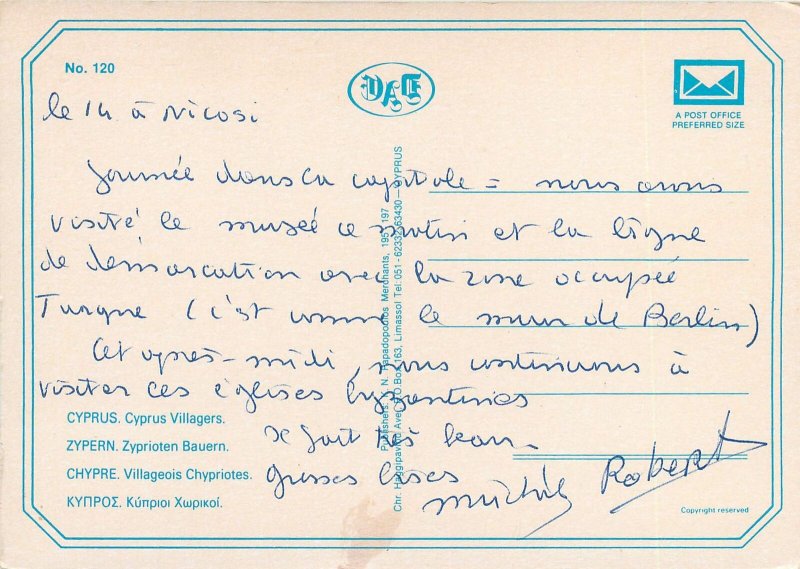 No. 120
DAE
A POST OFFICE
PREFERRED SIZE
le 14 à Nicosi
Journée dans la capitale = nous avons
visité le musée ce matin et la ligne
de démarcation avec la zone occupée
Turque (c'est comme le mur de Berlin)
Cet après-midi, nous continuons à
visiter ces églises byzantines
CYPRUS. Cyprus Villagers.
fait très beau.
ZYPERN. Zyprioten Bauern.
CHYPRE. Villageois Chypriotes.
grosses bises
Michèle Robert
ΚΥΠΡΟΣ. Κύπριοι Χωρικοί.
Copyright reserved
Publishers: N. Papadopoulos Merchants, 195 197
Ave. P.O.Box 163, Limassol Tel: 051-62332 63430-CYPRUS